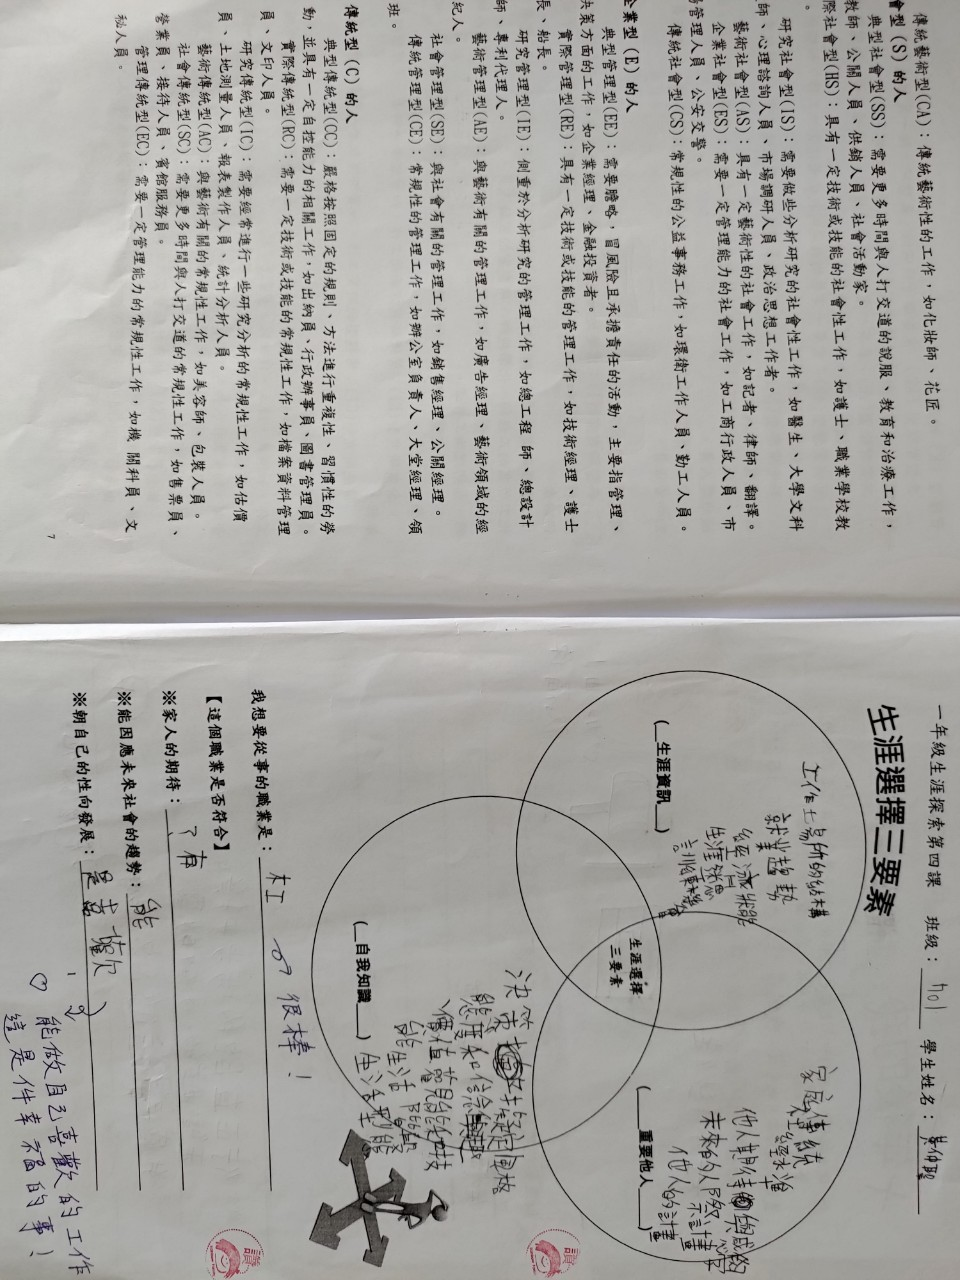 傳統藝術型(CA)：傳統藝術性的工作，如化妝師、花匠。
會型 (S) 的人
典型社會型(SS)：需要更多時間與人打交道的說服、教育和治療工作，
教師、公關人員、供銷人員、社會活動家。
際社會型(HS)：具有一定技術或技能的社會性工作，如護士、職業學校教
研究社會型(IS)：需要做些分析研究的社會性工作，如醫生、大學文科
師、心理諮詢人員、市場調研人員、政治思想工作者。
藝術社會型(AS)：具有一定藝術性的社會工作，如記者、律師、翻譯。
企業社會型(ES)：需要一定管理能力的社會工作，如工商行政人員、市
場管理人員、公安交警。
傳統社會型(CS)：常規性的公益事務工作，如環衛工作人員、勤工人員。
企業型 (E) 的人
典型管理型(EE)：需要膽略，冒風險且承擔責任的活動，主要指管理、
決策方面的工作，如企業經理、金融投資者。
實際管理型(RE)：具有一定技術或技能的管理工作，如技術經理、護士
長、船長。
研究管理型(IE)：側重於分析研究的管理工作，如總工程 師、總設計
師、專利代理人。
藝術管理型(AE)：與藝術有關的管理工作，如廣告經理、藝術領域的經
紀人。
社會管理型(SE)：與社會有關的管理工作，如銷售經理、公關經理。
傳統管理型(CE)：常規性的管理工作，如辦公室負責人、大堂經理、領
班。
傳統型 (C) 的人
典型傳統型(CC)：嚴格按照固定的規則、方法進行重複性、習慣性的勞
動，並具有一定自控能力的相關工作，如出納員、行政辦事員、圖書管理員。
實際傳統型(RC)：需要一定技術或技能的常規性工作，如檔案資料管理
員、文印人員。
研究傳統型(IC)：需要經常進行一些研究分析的常規性工作，如估價
員、土地測量人員、報表製作人員、統計分析人員。
藝術傳統型(AC)：與藝術有關的常規性工作，如美容師、包裝人員。
社會傳統型(SC)：需要更多時間與人打交道的常規性工作，如售票員、
營業員、接待人員、賓館服務員。
管理傳統型(EC)：需要一定管理能力的常規性工作，如機 關科員、文
祕人員。
7
一年級生涯探索第四課 班級：701 學生姓名：
生涯選擇三要素
(生涯資訊)
工作場所的結構
就業趨勢
經濟狀態
生涯資
訓練
生涯選擇
三要素
(重要他人)
家庭傳統
經濟
他人期待
未來的
他人的
(自我知識)
決策
風格
態度和信念
價值觀
生活
我想要從事的職業是： 很棒！
【這個職業是否符合】
※家人的期待：有
※能因應未來社會的趨勢：能
※朝自己的性向發展：是，喜歡
能做自己喜歡的工作
這是件幸福的事！
讚
讚